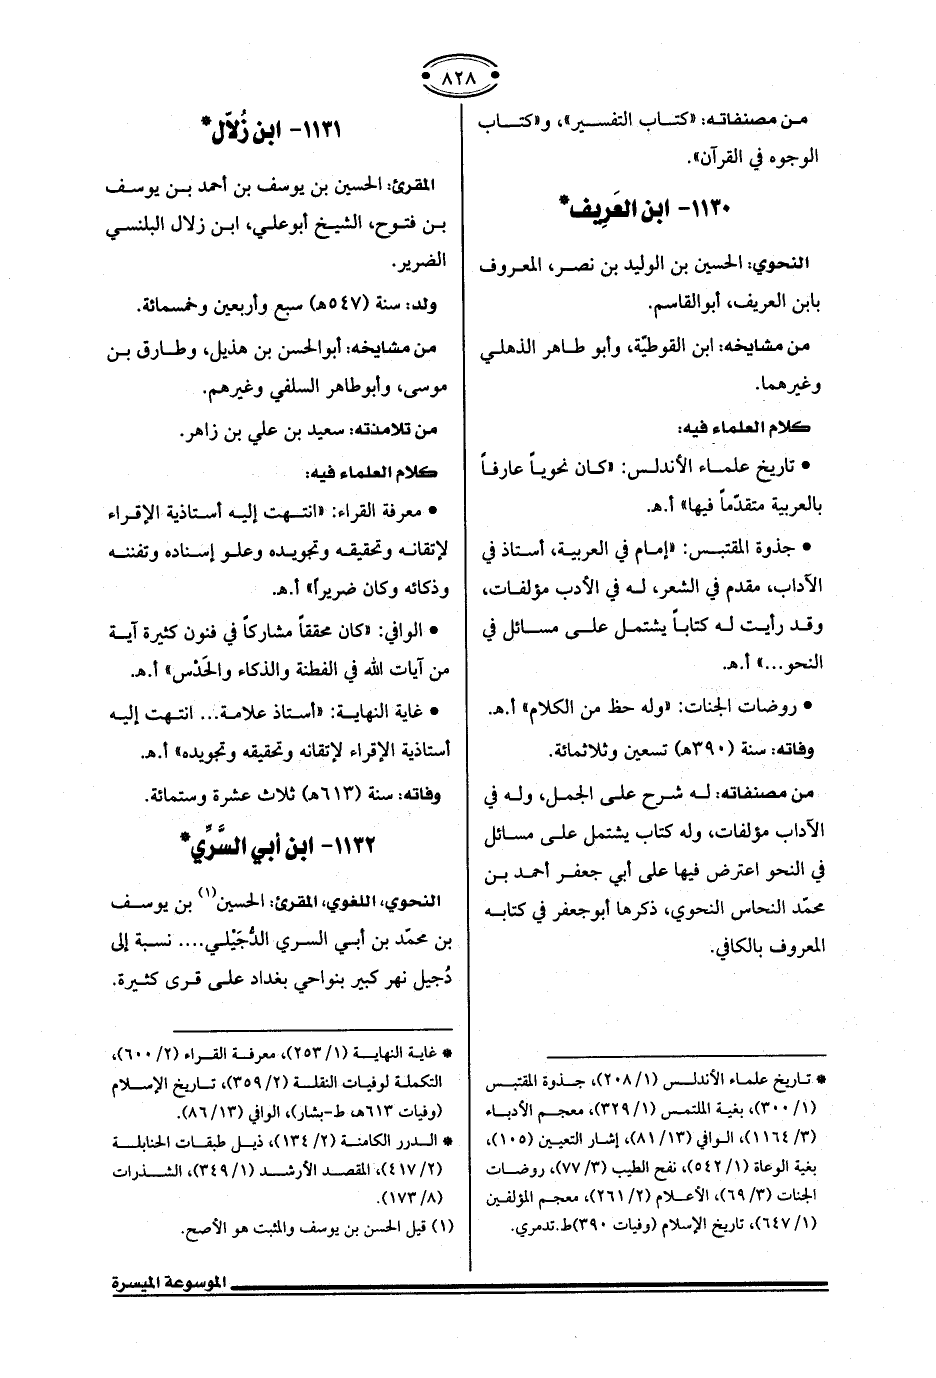 ٨٢٨
من مصنفاته: «كتاب التفسير»، و«كتاب
الوجوه في القرآن».
١١٣٠- ابن العَرِيف*
النحوي: الحسين بن الوليد بن نصر، المعروف
بابن العريف، أبوالقاسم.
من مشايخه: ابن القوطيّة، وأبو طاهر الذهلي
وغيرهما.
كلام العلماء فيه:
• تاريخ علماء الأندلس: «كان نحوياً عارفاً
بالعربية متقدّماً فيها» أ.هـ.
• جذوة المقتبس: «إمام في العربية، أستاذ في
الآداب، مقدم في الشعر، له في الأدب مؤلفات،
وقد رأيت له كتاباً يشتمل على مسائل في
النحو...» أ.هـ.
• روضات الجنات: «وله حظ من الكلام» أ.هـ.
وفاته: سنة (٣٩٠هـ) تسعين وثلاثمائة.
من مصنفاته: له شرح على الجمل، وله في
الآداب مؤلفات، وله كتاب يشتمل على مسائل
في النحو اعترض فيها على أبي جعفر أحمد بن
محمّد النحاس النحوي، ذكرها أبوجعفر في كتابه
المعروف بالكافي.
* تاريخ علماء الأندلس (٢٠٨/١)، جذوة المقتبس
(٣٠٠/١)، بغية الملتمس (٣٢٩/١)، معجم الأدباء
(١١٦٤/٣)، الوافي (٨١/١٣)، إشار التعيين (١٠٥)،
بغية الوعاة (٥٤٢/١)، نفح الطيب (٧٧/٣)، روضات
الجنات (٦٩/٣)، الأعلام (٢٦١/٢)، معجم المؤلفين
(٦٤٧/١)، تاريخ الإسلام (وفيات ٣٩٠)ط.تدمري.
١١٣١- ابن زُلاّل*
المقرئ: الحسين بن يوسف بن أحمد بن يوسف
بن فتوح، الشيخ أبوعلي، ابن زلال البلنسي
الضرير.
ولد: سنة (٥٤٧هـ) سبع وأربعين وخمسمائة.
من مشايخه: أبوالحسن بن هذيل، وطارق بن
موسى، وأبوطاهر السلفي وغيرهم.
من تلامذته: سعيد بن علي بن زاهر.
كلام العلماء فيه:
• معرفة القراء: «انتهت إليه أستاذية الإقراء
لإتقانه وتحقيقه وتجويده وعلو إسناده وتفننه
وذكائه وكان ضريراً» أ.هـ.
• الوافي: «كان محققاً مشاركاً في فنون كثيرة آية
من آيات الله في الفطنة والذكاء والحَدْس» أ.هـ.
• غاية النهاية: «أستاذ علامة... انتهت إليه
أستاذية الإقراء لإتقانه وتحقيقه وتجويده» أ.هـ.
وفاته: سنة (٦١٣هـ) ثلاث عشرة وستمائة.
١١٣٢- ابن أبي السَّرِّي*
النحوي، اللغوي، المقرئ: الحسين(١) بن يوسف
بن محمّد بن أبي السري الدُّجَيْلي.... نسبة إلى
دُجيل نهر كبير بنواحي بغداد على قرى كثيرة.
* غاية النهاية (٢٥٣/١)، معرفة القراء (٦٠٠/٢)،
التكملة لوفيات النقلة (٣٥٩/٢)، تاريخ الإسلام
(وفيات ٦١٣هـ، ط-بشار)، الوافي (٨٦/١٣).
* الدرر الكامنة (١٣٤/٢)، ذيل طبقات الحنابلة
(٤١٧/٢)، المقصد الأرشد (٣٤٩/١)، الشذرات
(١٧٣/٨).
(١) قيل الحسن بن يوسف والمثبت هو الأصح.
الموسوعة الميسرة